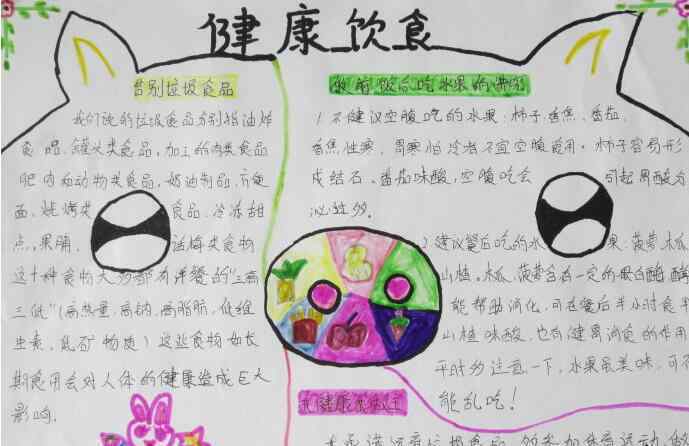 健康饮食
告别垃圾食品
我们说的垃圾食品分别指油炸
食品、罐头类食品、加工的肉类食品
肥肉和动物类食品、奶油制品、方便
面、烧烤类食品、冷冻甜
点、果脯、话梅类食物
这十种食物大多都有洋餐的“三高
三低”(高热量、高钠、高脂肪、低维
生素、低矿物质)这些食物如长
期食用会对人体的健康造成巨大
影响。
饭前饭后吃水果的讲究
1.不建议空腹吃的水果:柿子、香蕉、番茄,
香蕉性寒,胃寒怕冷者不宜空腹食用。柿子容易形
成结石、番茄味酸,空腹吃会引起胃酸分
泌过多。
2.建议餐后吃的水果:菠萝、木瓜、
山楂。木瓜、菠萝含有一定的蛋白酶,
能帮助消化,可在餐后半小时食
山楂味酸,也有健胃消食的作用
平时多注意一下,水果虽美味,可不
能乱吃!
健康